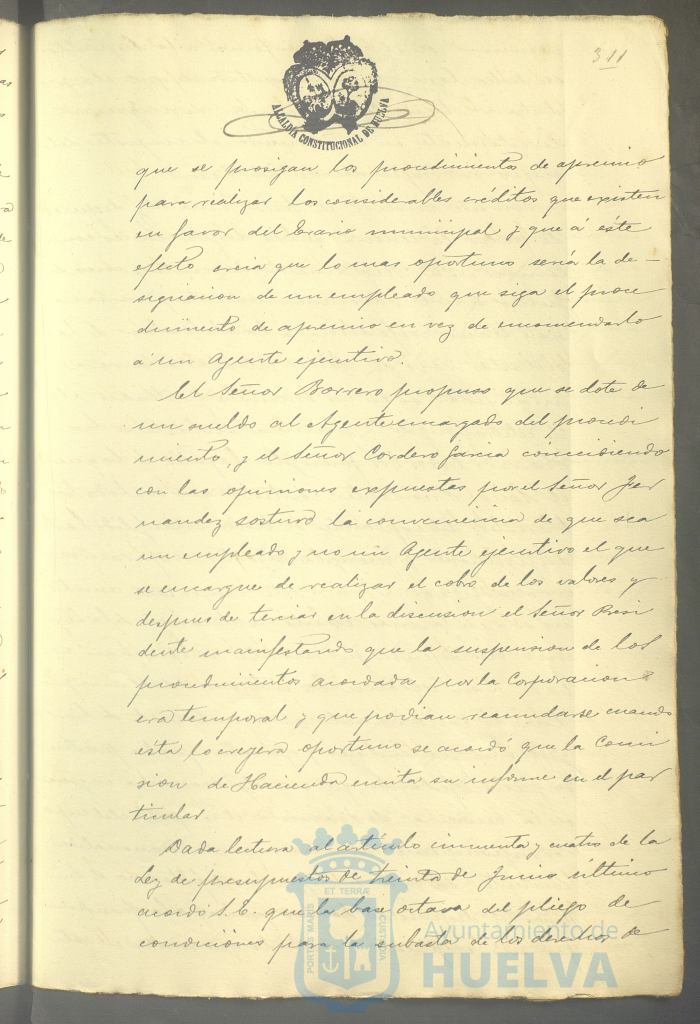 311
ALCALDIA CONSTITUCIONAL DE HUELVA
que se prosigan los procedimientos de apremio
para realizar los considerables créditos que existen
en favor del Erario municipal y que á este
efecto creia que lo mas oportuno sería la de-
signacion de un empleado que siga el proce
dimiento de apremio en vez de encomendarlo
a un Agente ejecutivo.
El Señor Borrero propuso que se dote de
un sueldo al Agente encargado del procedi
miento, y el Señor Cordero Garcia coincidiendo
con las opiniones expuestas por el Señor Fer
nandez sostuvo la conveniencia de que sea
un empleado y no un Agente ejecutivo el que
se encargue de realizar el cobro de los valores y
despues de terciar en la discusion el Señor Presi
dente manifestando que la suspension de los
procedimientos acordada por la Corporacion
era temporal y que podian reanudarse cuando
ésta lo creyera oportuno se acordó que la Comi
sion de Hacienda emita su informe en el par
ticular.
Dada lectura al artículo cincuenta y cuatro de la
Ley de presupuestos de treinta de Junio último
acordó S.E. que la base octava del pliego de
condiciones para la subasta de los derechos de
PORTUS MARIS
ET TERRÆ
CUSTODIA
Ayuntamiento de
HUELVA